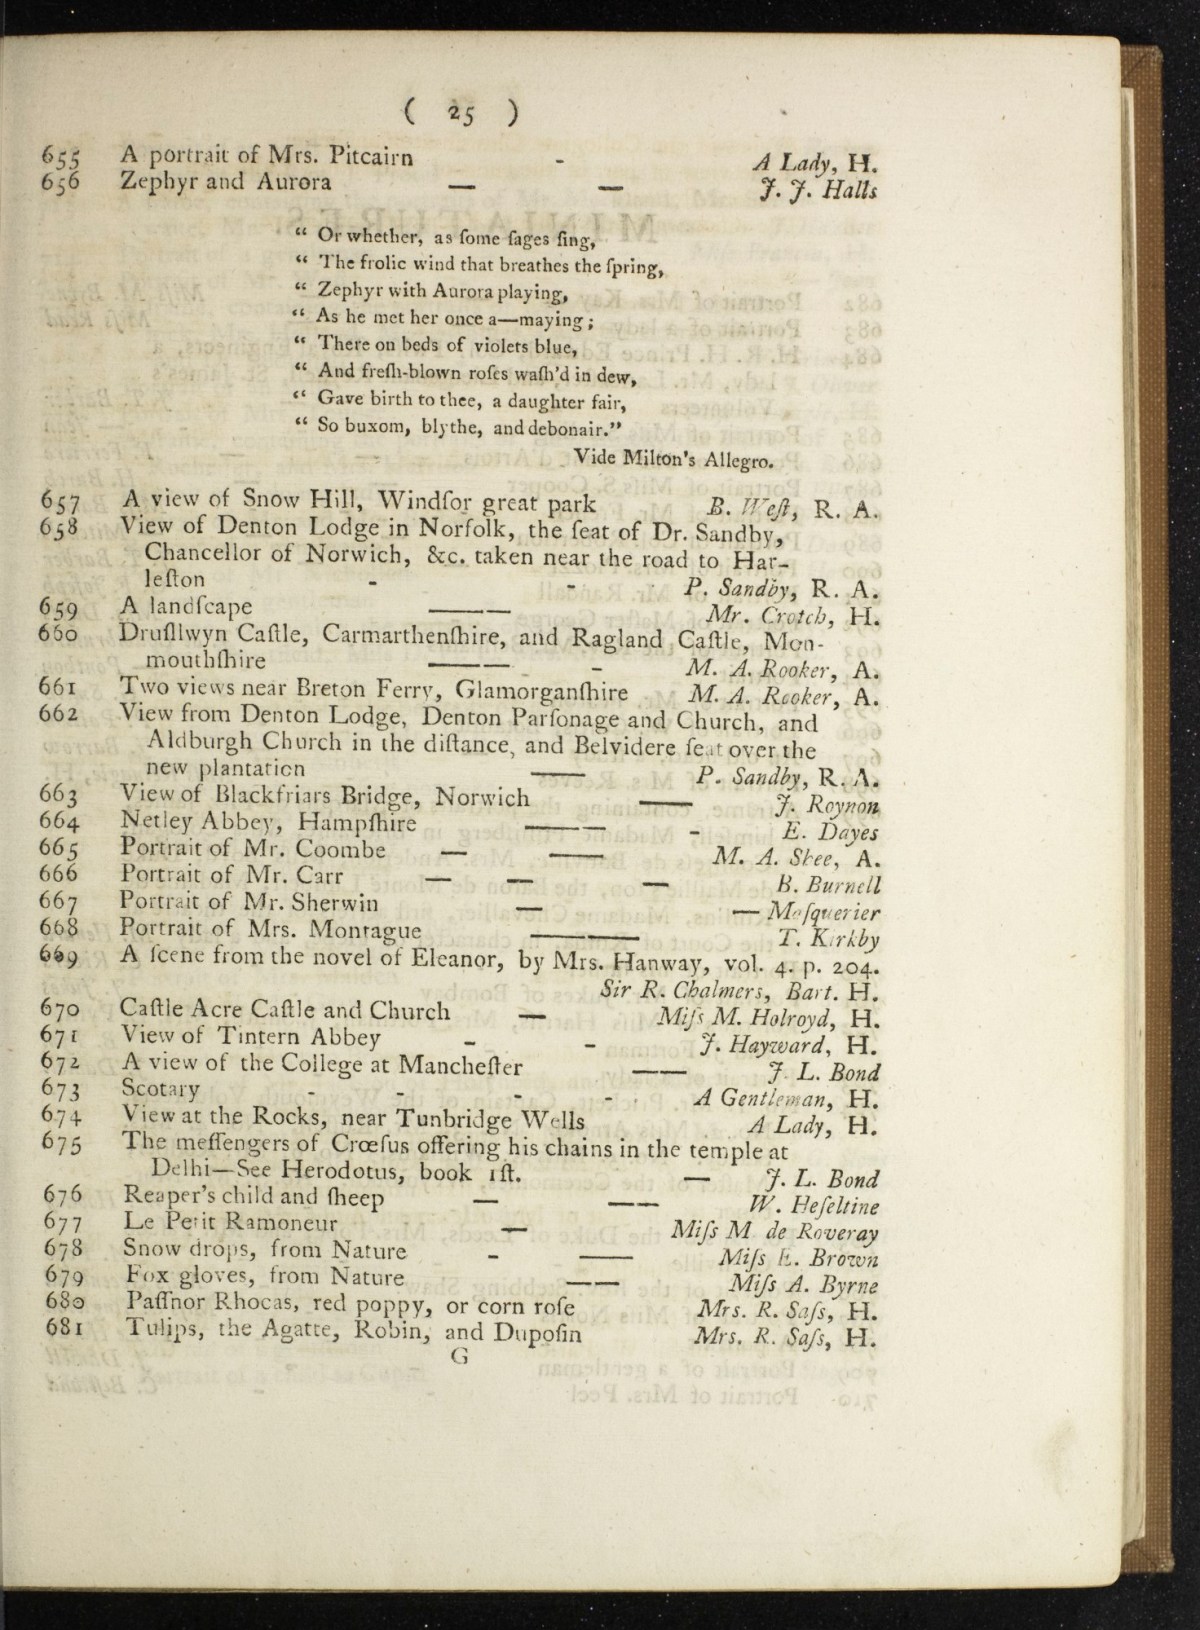 ( 25 )
655 A portrait of Mrs. Pitcairn - A Lady, H.
656 Zephyr and Aurora — — J. J. Halls
“ Or whether, as ſome ſages ſing,
“ The frolic wind that breathes the ſpring,
“ Zephyr with Aurora playing,
“ As he met her once a—maying ;
“ There on beds of violets blue,
“ And freſh-blown roſes waſh'd in dew,
“ Gave birth to thee, a daughter fair,
“ So buxom, blythe, and debonair.”
Vide Milton's Allegro.
657 A view of Snow Hill, Windſor great park B. Weſt, R. A.
658 View of Denton Lodge in Norfolk, the ſeat of Dr. Sandby,
Chancellor of Norwich, &c. taken near the road to Har-
leſton - - P. Sandby, R. A.
659 A landſcape —— Mr. Crotch, H.
660 Druſllwyn Caſtle, Carmarthenſhire, and Ragland Caſtle, Mon-
mouthſhire —— - M. A. Rooker, A.
661 Two views near Breton Ferry, Glamorganſhire M. A. Rooker, A.
662 View from Denton Lodge, Denton Parſonage and Church, and
Aldburgh Church in the diſtance, and Belvidere ſeat over the
new plantation —— P. Sandby, R. A.
663 View of Blackfriars Bridge, Norwich —— J. Roynon
664 Netley Abbey, Hampſhire —— - E. Dayes
665 Portrait of Mr. Coombe — —— M. A. Shee, A.
666 Portrait of Mr. Carr — — — B. Burnell
667 Portrait of Mr. Sherwin — — Moſquerier
668 Portrait of Mrs. Montague ——— T. Kirkby
669 A ſcene from the novel of Eleanor, by Mrs. Hanway, vol. 4. p. 204.
Sir R. Chalmers, Bart. H.
670 Caſtle Acre Caſtle and Church — Miſs M. Holroyd, H.
671 View of Tintern Abbey - - J. Hayward, H.
672 A view of the College at Mancheſter —— J. L. Bond
673 Scotary - - - - A Gentleman, H.
674 View at the Rocks, near Tunbridge Wells A Lady, H.
675 The meſſengers of Crœſus offering his chains in the temple at
Delhi—See Herodotus, book 1ſt. — J. L. Bond
676 Reaper's child and ſheep — —— W. Heſeltine
677 Le Petit Ramoneur — Miſs M de Roveray
678 Snow drops, from Nature - —— Miſs E. Brown
679 Fox gloves, from Nature —— Miſs A. Byrne
680 Paſſnor Rhocas, red poppy, or corn roſe Mrs. R. Saſs, H.
681 Tulips, the Agatte, Robin, and Dupoſin Mrs. R. Saſs, H.
G